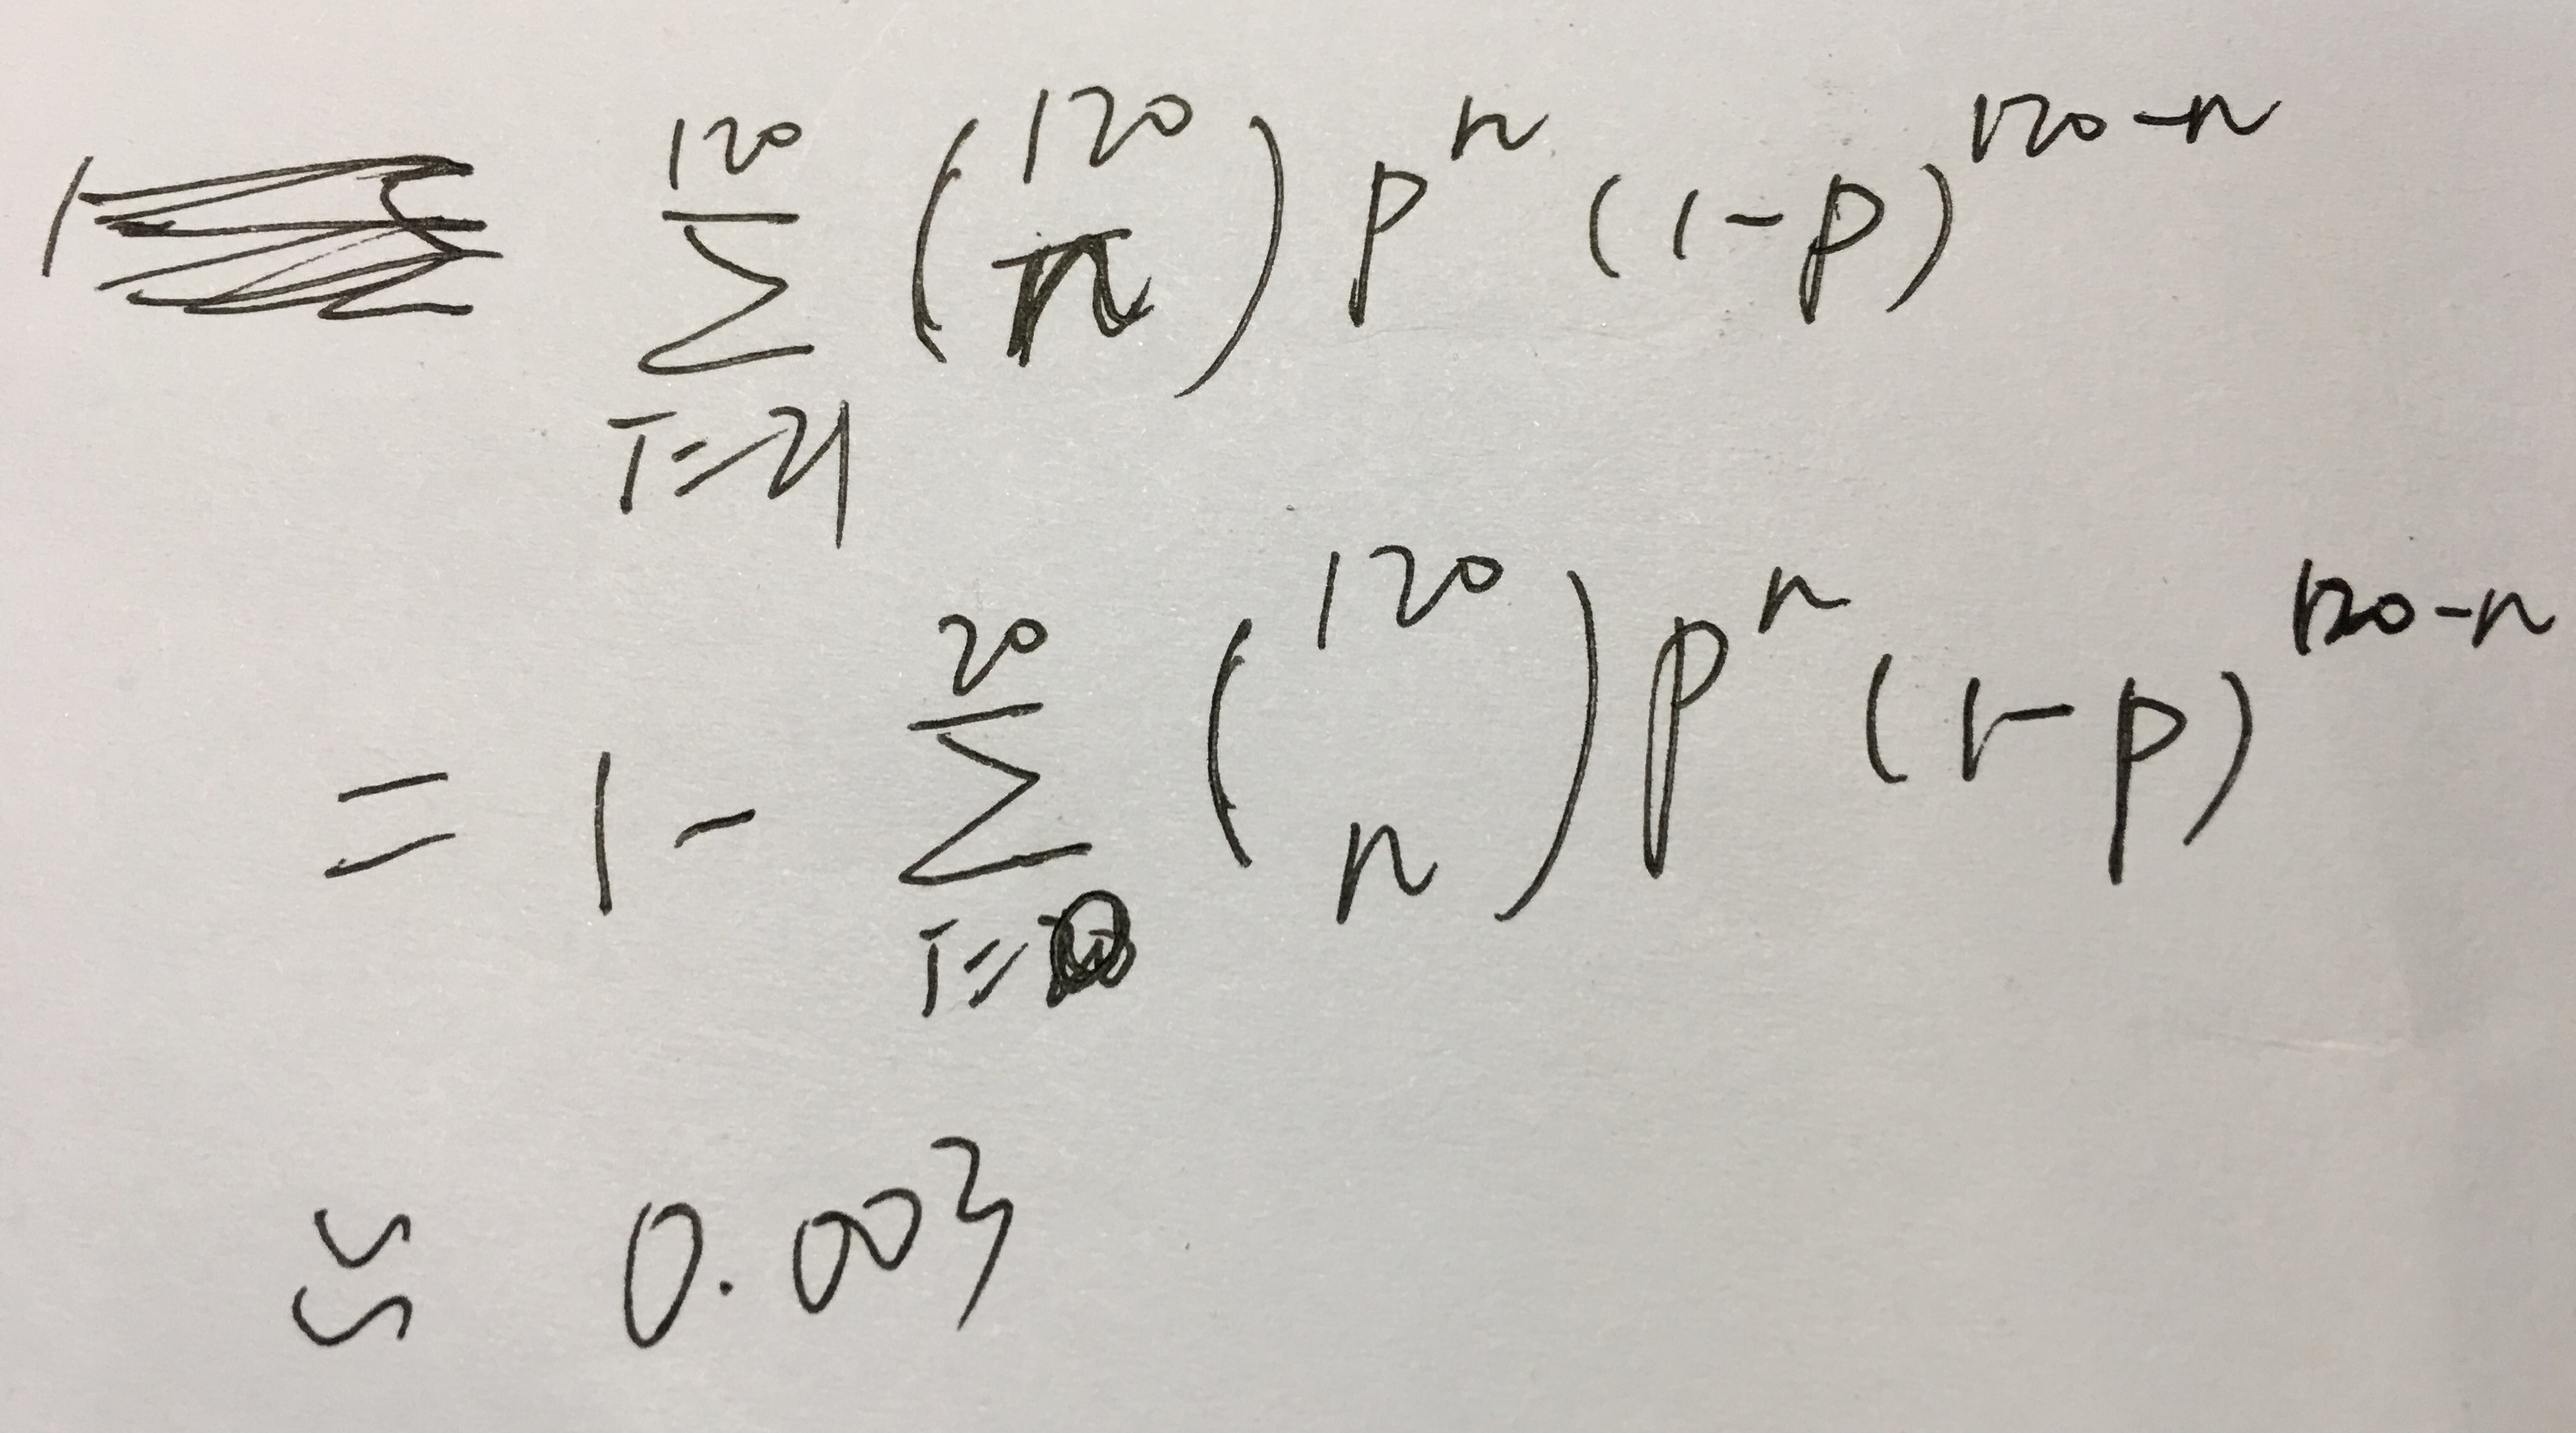 \sum_{i=21}^{120} \binom{120}{n} p^n (1-p)^{120-n}
= 1 - \sum_{i=0}^{20} \binom{120}{n} p^n (1-p)^{120-n}
≈ 0.003